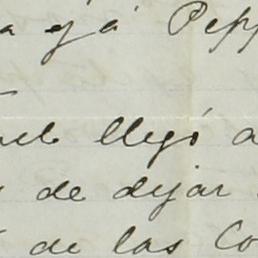 a y á Pepp
llegó a
de dejar
de las Co